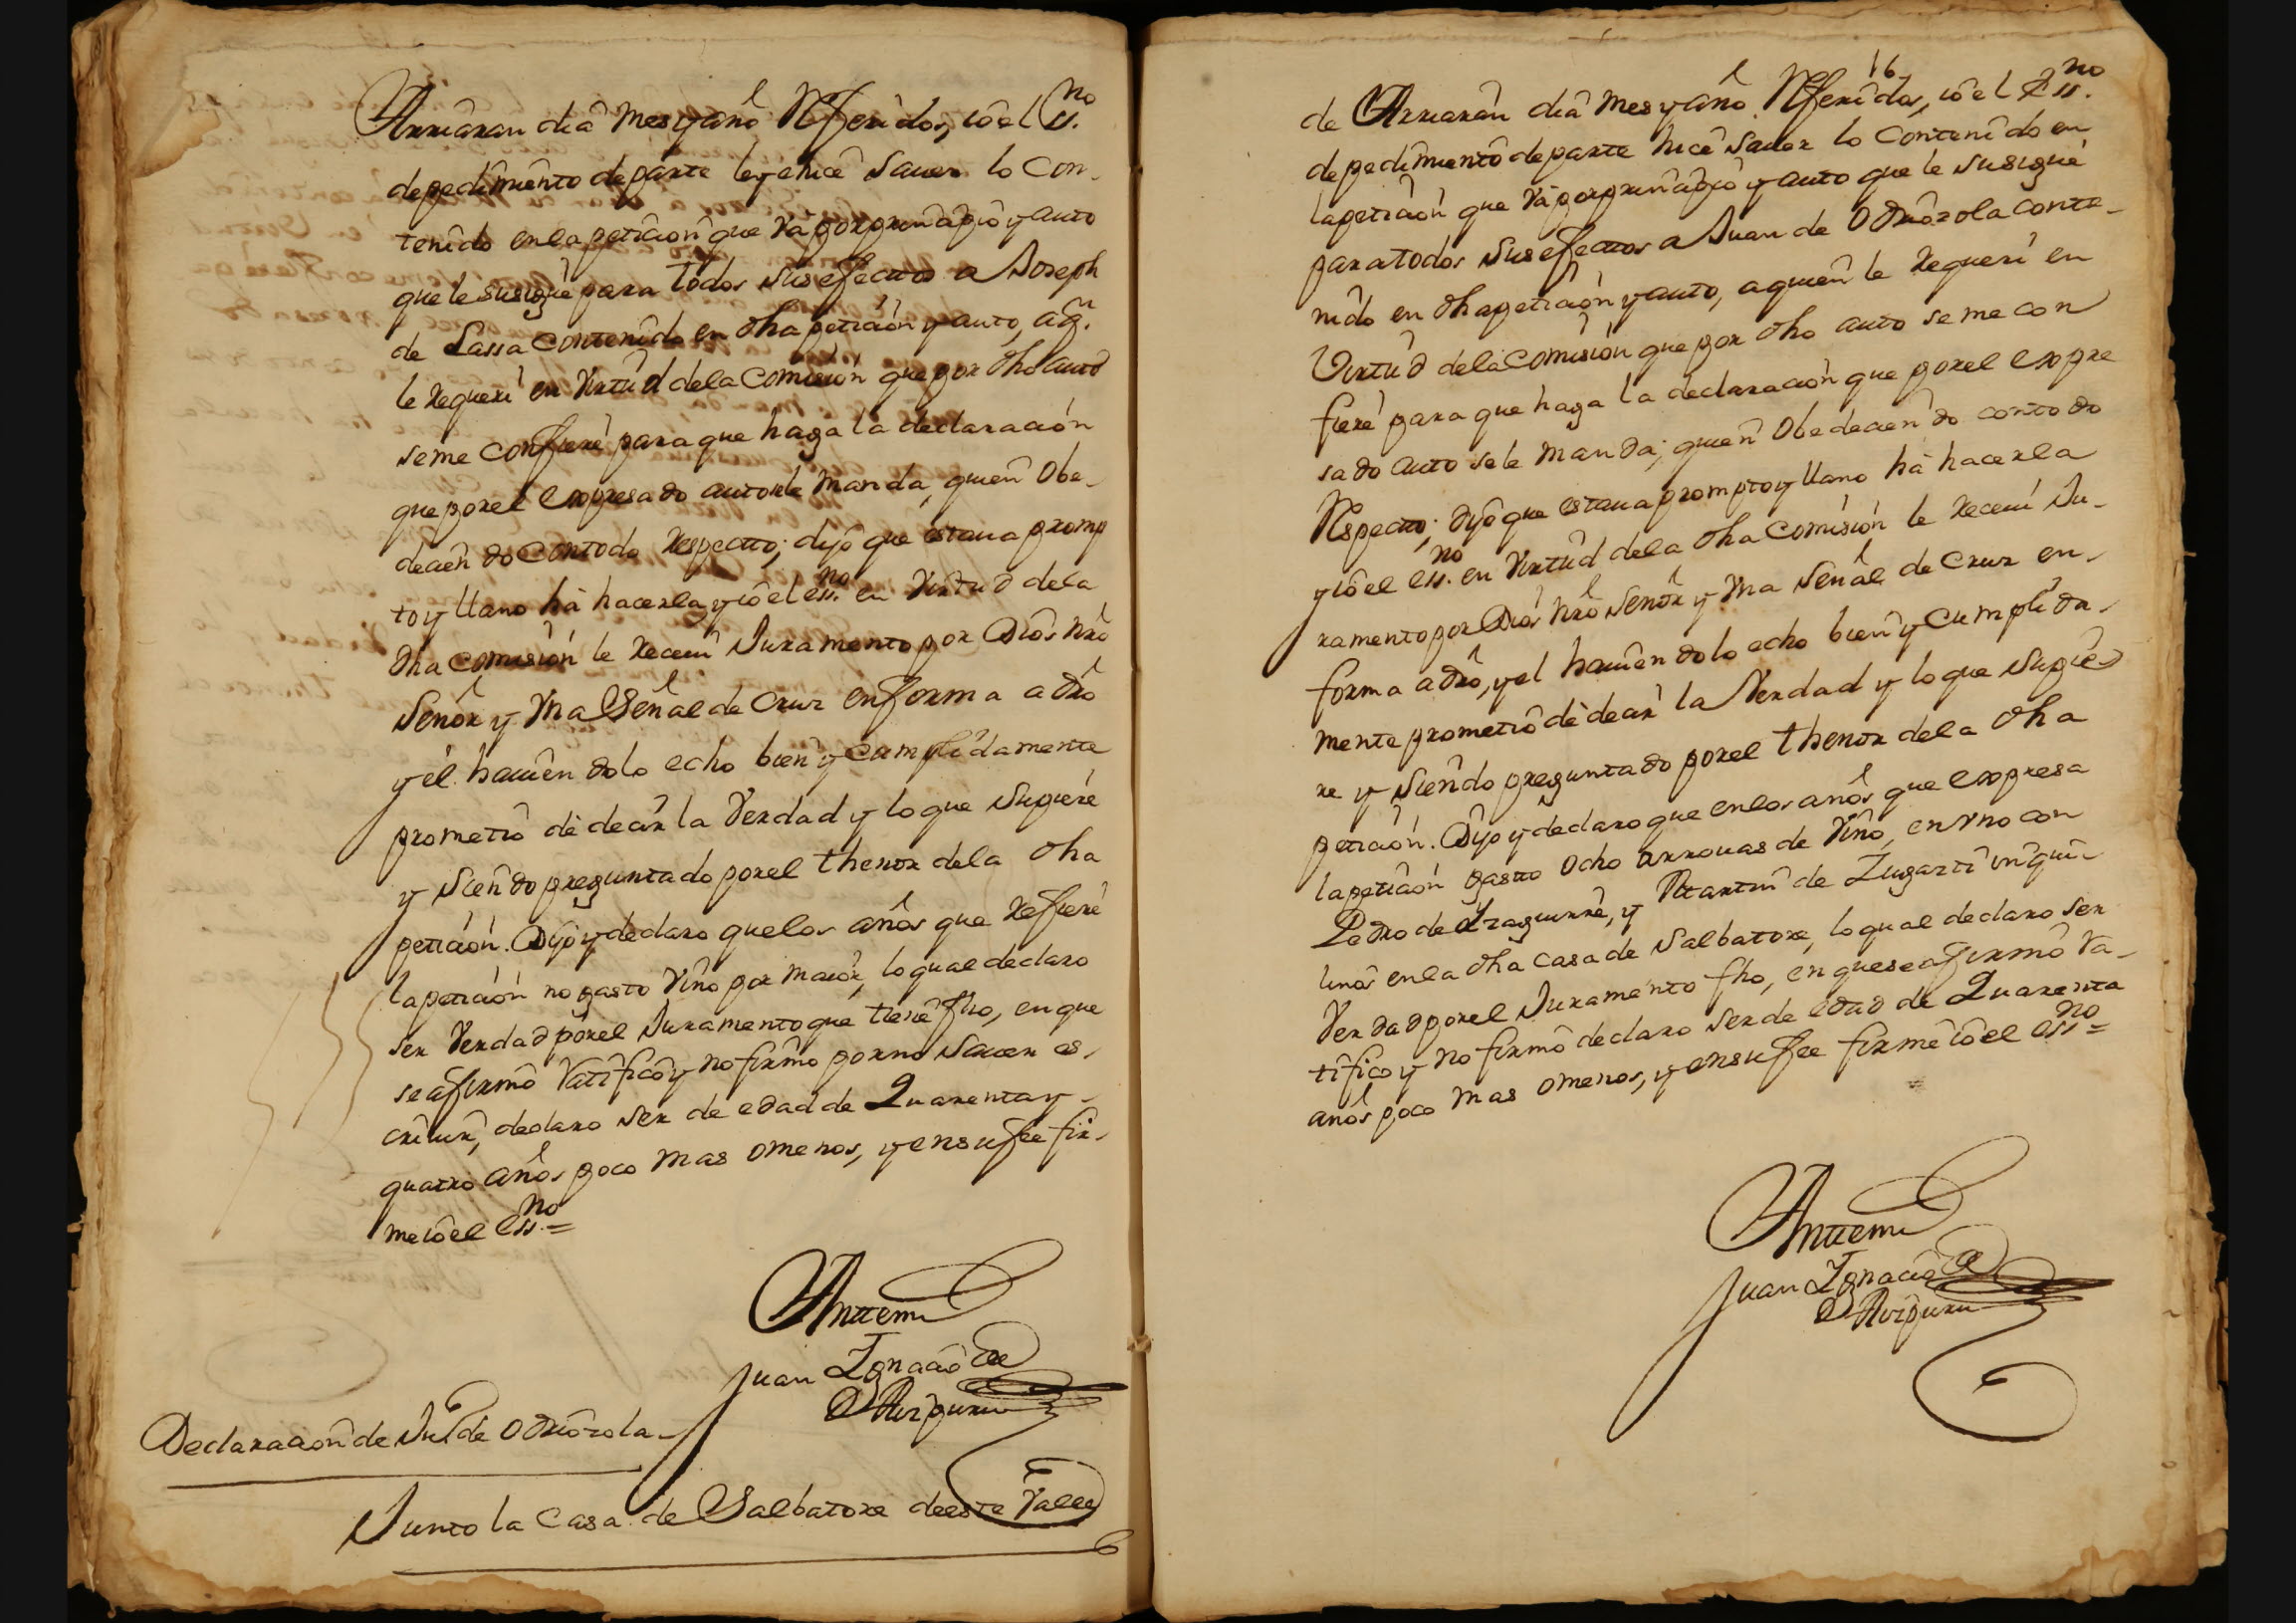 Arriaran dia mes y año Referidos, io el ess.no
de pedimiento de parte ley e hice sauer lo con-
tenido en la peticion que va por prinzipio y auto
que le susigue para todos sus efectos a Joseph
de Lassa contenido en dha peticion y auto, a qn.
le Requeri en virtud de la Comision que por dho auto
se me confiere para que haga la declaracion
que por el expresado auto se le manda, quien obe-
deciendo con todo Respecto; dijo que estaua promp
to y llano hà hacerla y io el ess.no en virtud de la
dha comision le Receui Juramento por Dios nro
Señor y Vna Señal de Cruz en forma a dro
y el hauiendolo echo bien y cumplidamente
prometio dè decir la Verdad y lo que supiere
y siendo preguntado por el thenor de la dha
peticion. Dijo y declaro que los años que Refiere
la peticion no gasto Vino por maior, lo qual declaro
ser Verdad por el Juramento que tiene fho, en que
se afirmo Ratifico y no firmo por no sauer es-
criuir, declaro ser de edad de Quarenta y
quatro años poco mas o menos, y en su fee fir-
me io el ess.no =
Anttemi
Juan Ignacio de
Aizpuru
Declaracion de Jun de Odriozola
Junto la Casa de Salbatore de este Valle
16
de Arriaran dia mes y año Referidos, io el Ess.no
de pedimiento de parte hice sauer lo contenido en
la peticion que va por prinzipio y auto que le susigue
para todos sus efectos a Juan de Odriozola conte-
nido en dha peticion y auto, a quien le Requeri en
Virtud de la Comision que por dho auto se me con
fiere para que haga la declaracion que por el expre
sado auto se le manda; quien obedeciendo con todo
Respecto; dijo que estaua prompto y llano hà hacerla
y io el ess.no en Virtud de la dha Comision le Receui Ju-
ramento por Dios nro Señor y Vna Señal de Cruz en-
forma a dro, y el hauiendolo echo bien y cumplida-
mente prometio dè decir la Verdad y lo que supie-
re y siendo preguntado por el thenor de la dha
peticion. Dijo y declaro que en los años que expresa
la peticion gasto ocho arrouas de Vino, en vno con
Pedro de Yzaguirre, y Martin de Zugasti inqui-
linos en la dha casa de Salbatore, lo qual declaro ser
Verdad por el Juramento fho, en que se afirmo Ra-
tifico y no firmo declaro ser de edad de Quarenta
años poco mas o menos, y en su fee firme io el ess.no =
Anttemi
Juan Ignacio de
Aizpuru